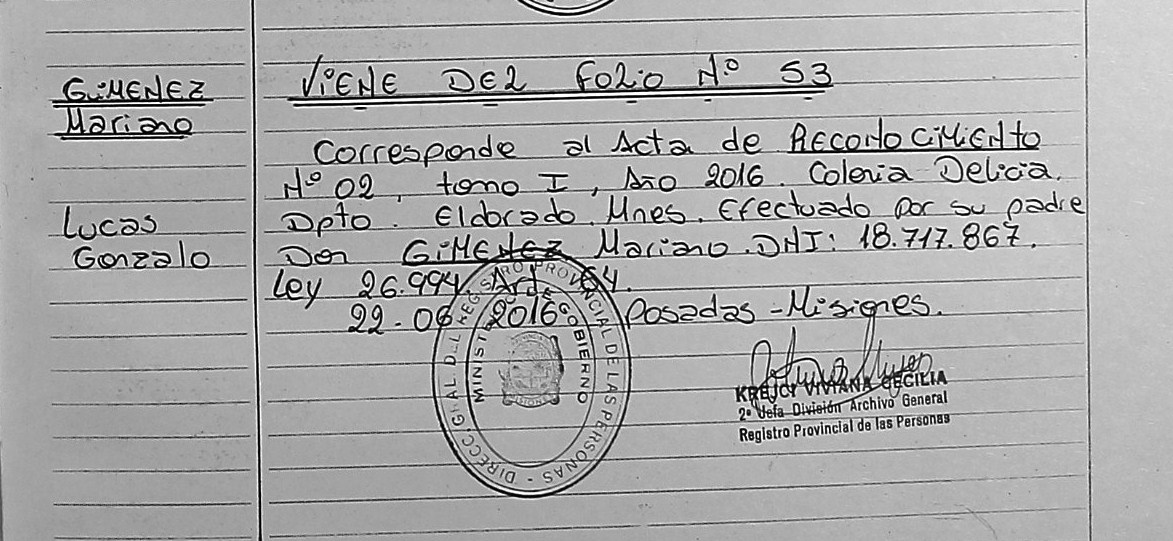 GiMENEZ
Mariano
Lucas
Gonzalo
ViENE DEL FOLIO Nº 53
Corresponde al Acta de RECONOCIMIENTO
Nº 02, tomo I, Año 2016. Colonia Delicia.
Dpto. Eldorado. Mnes. Efectuado por su padre
Don GiMENEZ Mariano. DNI: 18.717.867.
Ley 26.994. Art. 64.
22-06 2016 Posadas - Misiones.
DIRECC. GRAL. DEL REGISTRO PROVINCIAL DE LAS PERSONAS -
MINIST GOBIERNO
KREJCI VIVIANA CECILIA
2º Jefa División Archivo General
Registro Provincial de las Personas